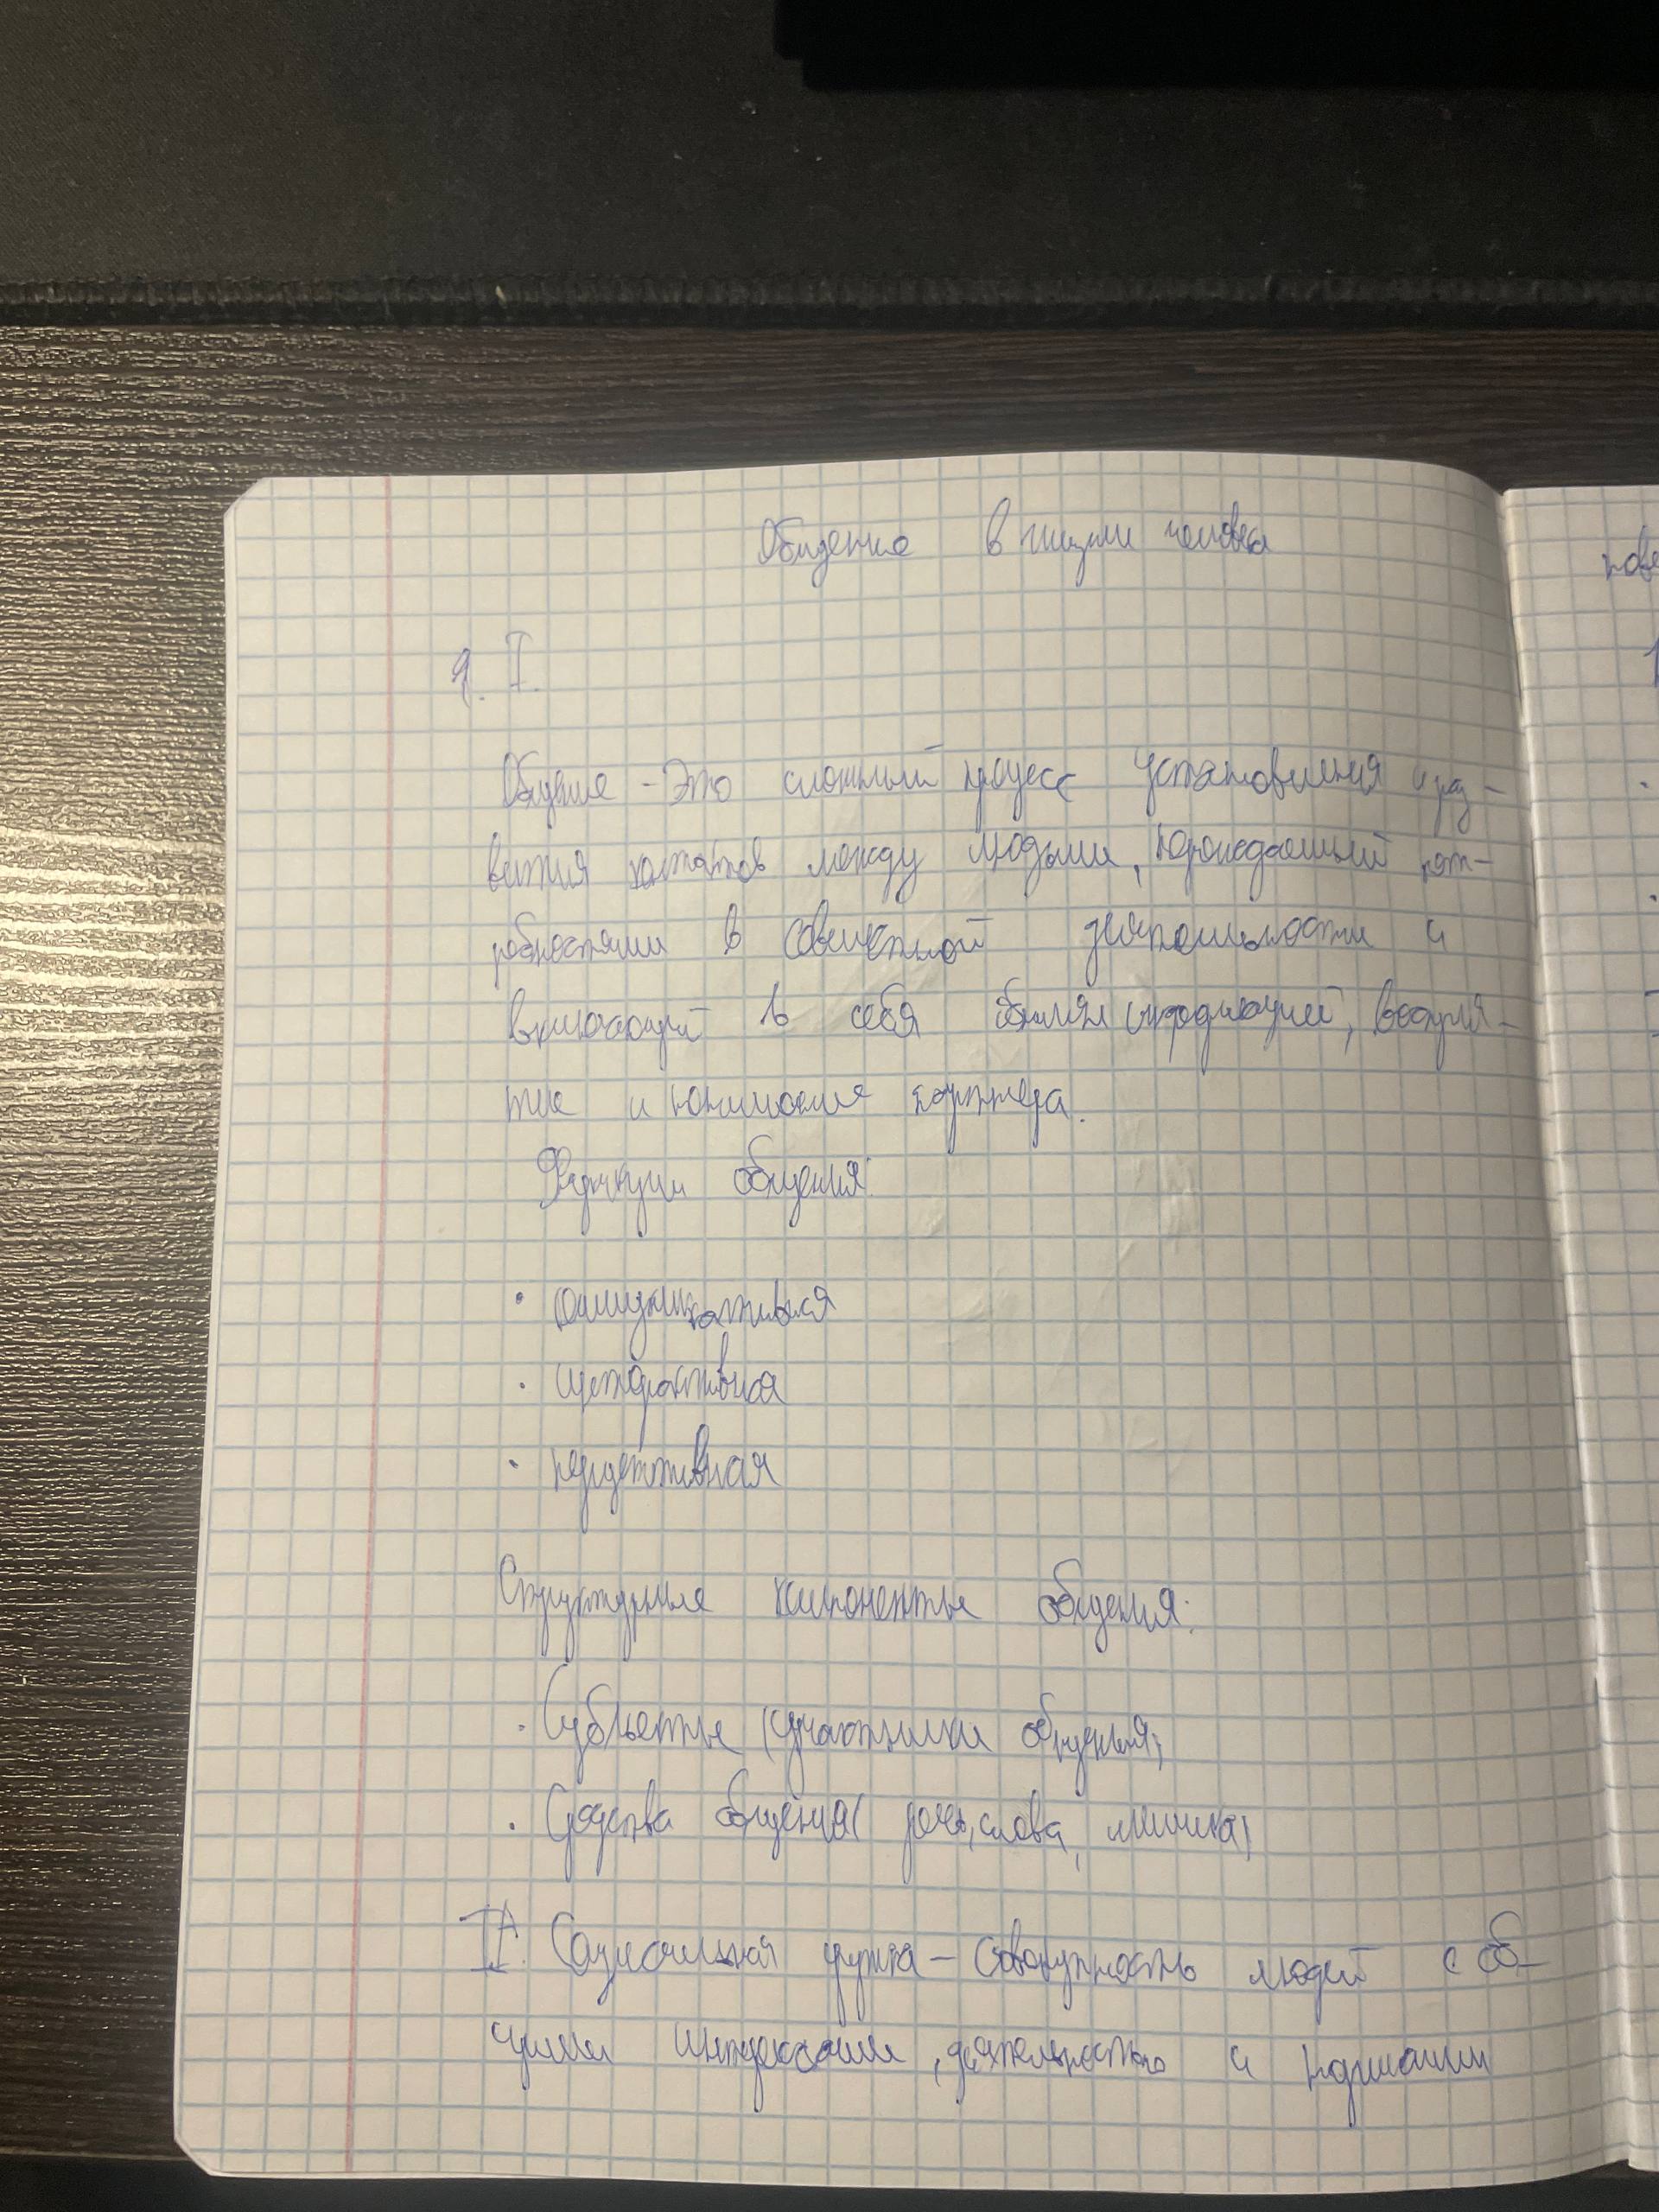 Общение в жизни человека
I.
Общение - Это сложный процесс установления и раз-
вития контактов между людьми, порождаемый пот-
ребностями в совместной деятельности и
включающий в себя обмен информацией, восприя-
тие и понимание партнера.
Функции общения:
· коммуникативная
· интерактивная
· перцептивная
Структурные компоненты общения:
· Субъекты (участники общения;
· Средства общения( речь, слова, мимика)
II. Социальная группа - совокупность людей с об-
щими интересами, деятельностью и нормами
пове